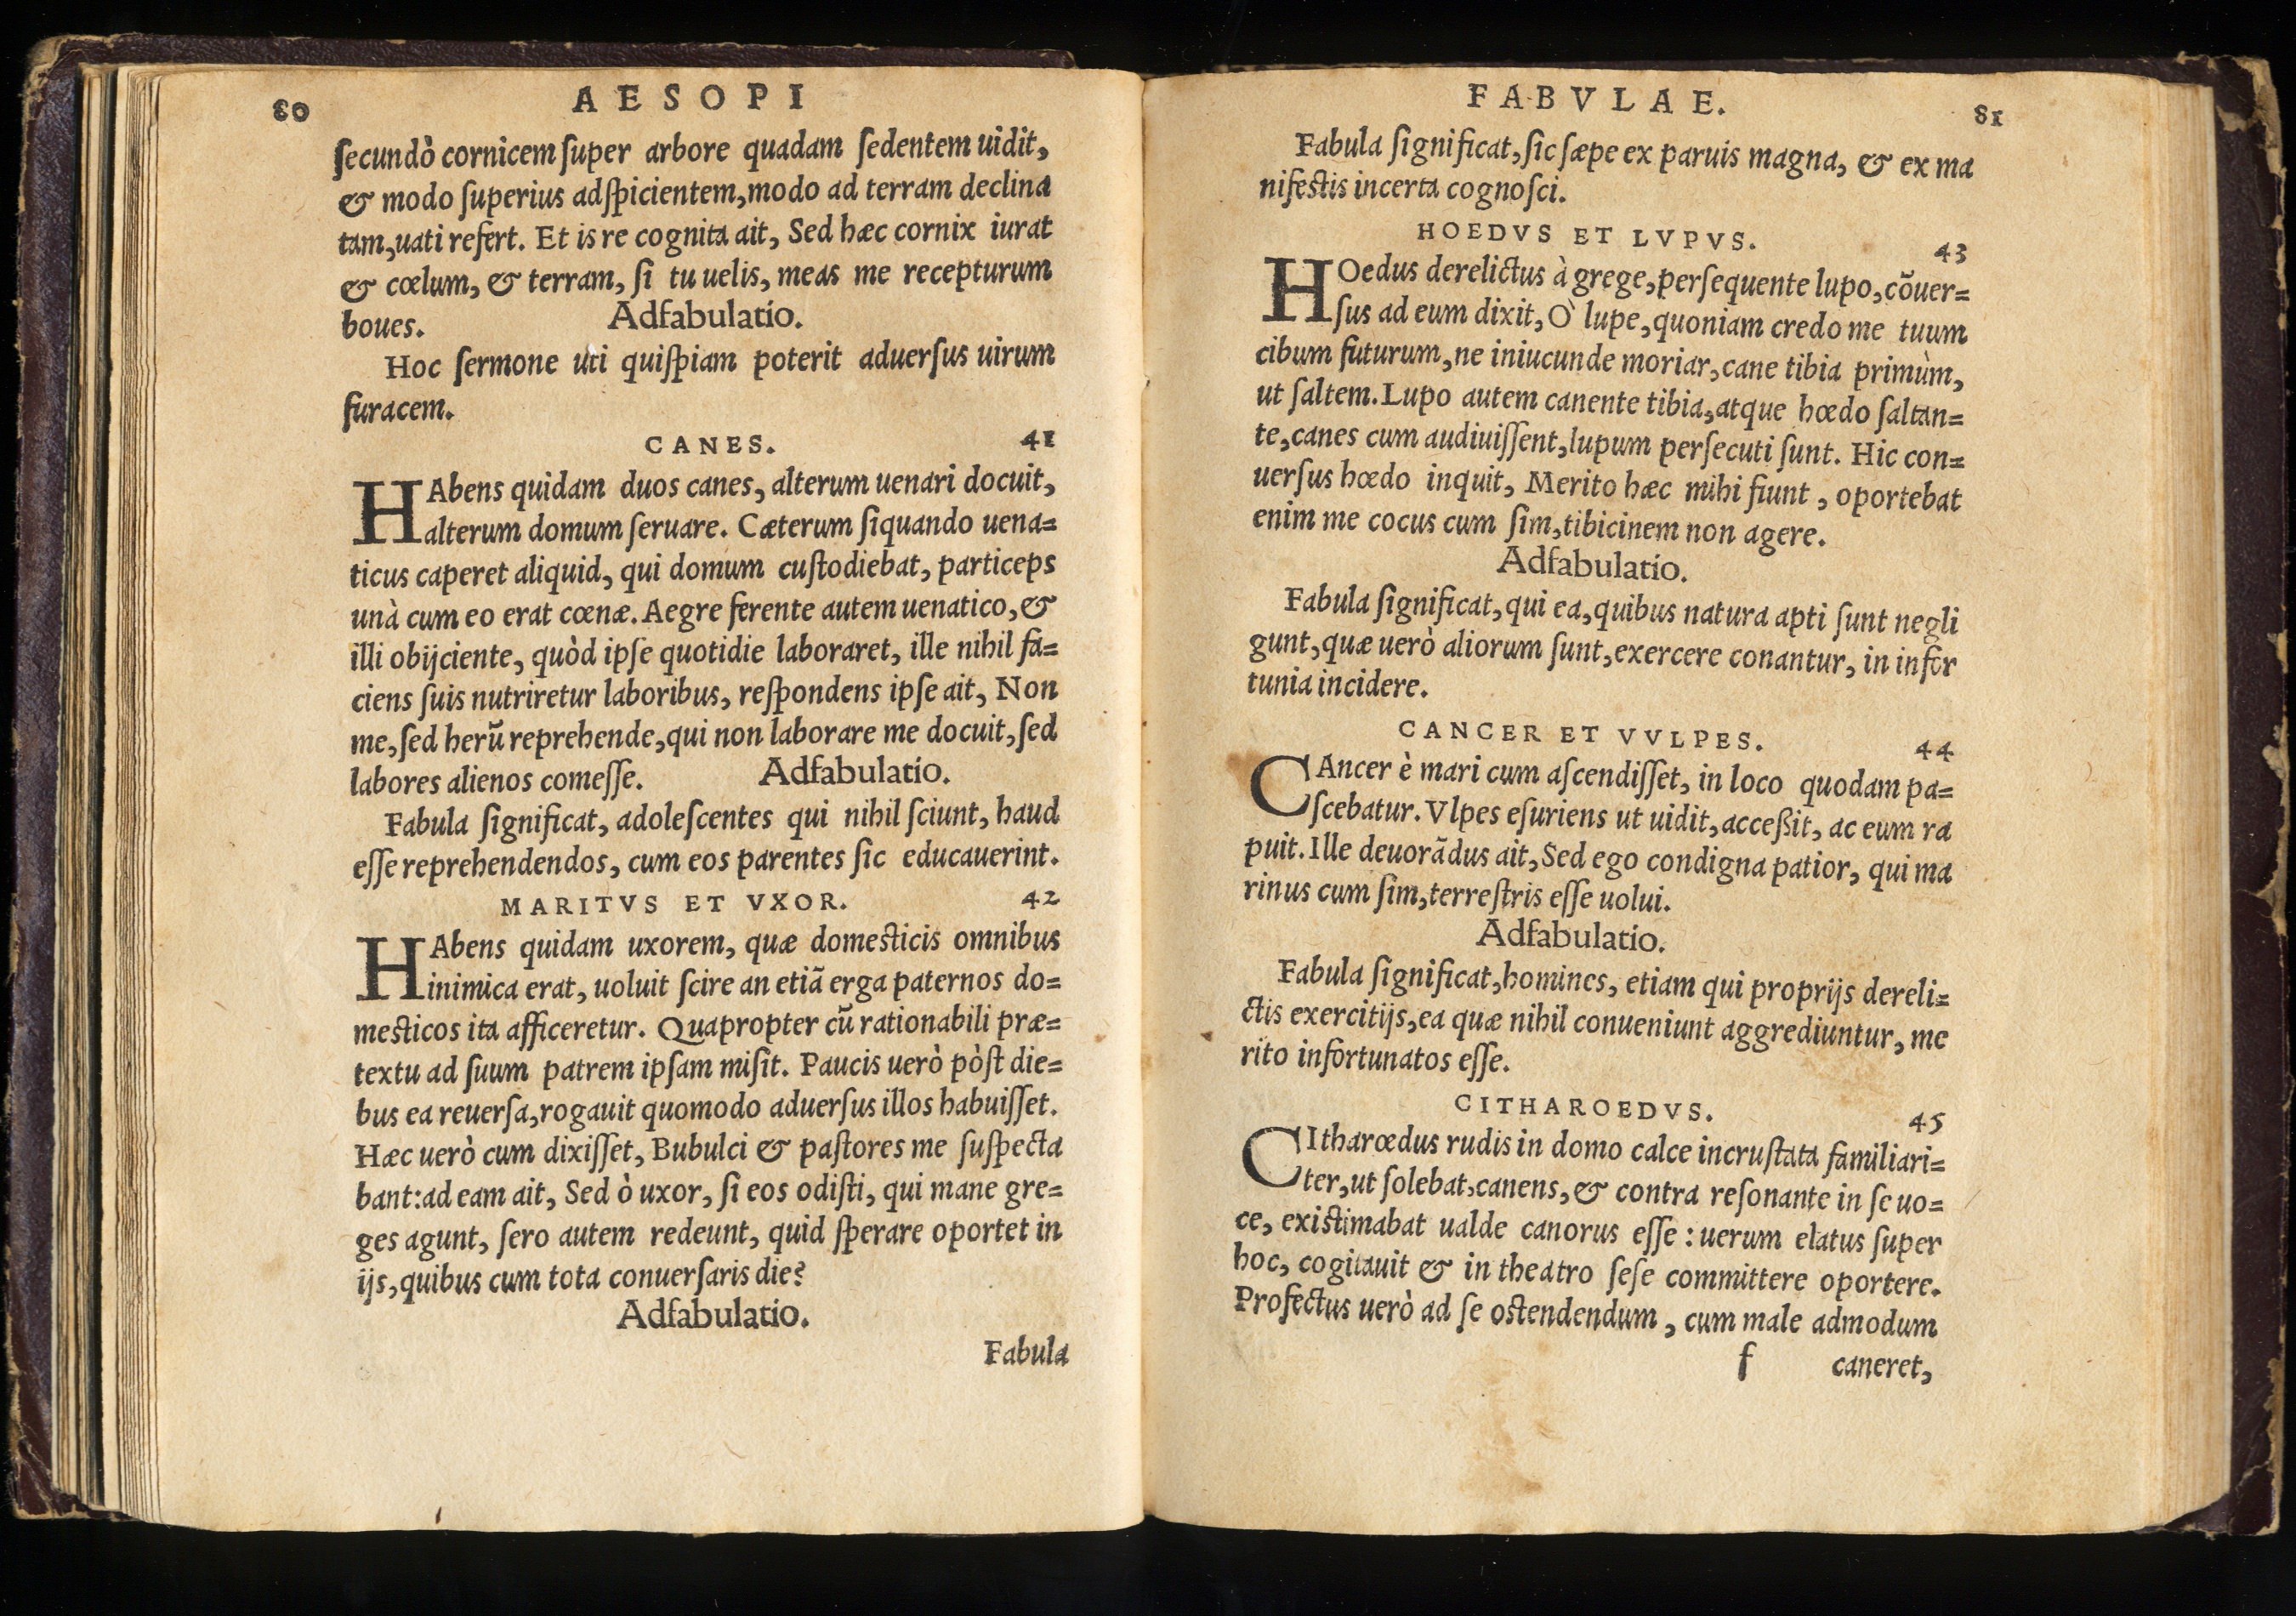 80
AESOPI
ſecundò cornicem ſuper arbore quadam ſedentem uidit,
& modo ſuperius adſpicientem, modo ad terram declina
tam, uati refert. Et is re cognita ait, Sed hæc cornix iurat
& cœlum, & terram, ſi tu uelis, meas me recepturum
boues. Adfabulatio.
Hoc ſermone uti quiſpiam poterit aduerſus uirum
furacem.
CANES. 41
HAbens quidam duos canes, alterum uenari docuit,
alterum domum ſeruare. Cæterum ſiquando uena=
ticus caperet aliquid, qui domum cuſtodiebat, particeps
unà cum eo erat cœnæ. Aegre ferente autem uenatico, &
illi obijciente, quòd ipſe quotidie laboraret, ille nihil fa=
ciens ſuis nutriretur laboribus, reſpondens ipſe ait, Non
me, ſed herũ reprehende, qui non laborare me docuit, ſed
labores alienos comeſſe. Adfabulatio.
Fabula ſignificat, adoleſcentes qui nihil ſciunt, haud
eſſe reprehendendos, cum eos parentes ſic educauerint.
MARITVS ET VXOR. 42
HAbens quidam uxorem, quæ domeſticis omnibus
inimica erat, uoluit ſcire an etiã erga paternos do=
meſticos ita afficeretur. Quapropter cũ rationabili præ=
textu ad ſuum patrem ipſam miſit. Paucis uerò pòſt die=
bus ea reuerſa, rogauit quomodo aduerſus illos habuiſſet.
Hæc uerò cum dixiſſet, Bubulci & paſtores me ſuſpecta
bant: ad eam ait, Sed ò uxor, ſi eos odiſti, qui mane gre=
ges agunt, ſero autem redeunt, quid ſperare oportet in
ijs, quibus cum tota conuerſaris die?
Adfabulatio.
Fabula
FABVLAE.
81
Fabula ſignificat, ſic ſæpe ex paruis magna, & ex ma
nifeſtis incerta cognoſci.
HOEDVS ET LVPVS. 43
HOedus derelictus à grege, perſequente lupo, cõuer=
ſus ad eum dixit, Ò lupe, quoniam credo me tuum
cibum futurum, ne iniucunde moriar, cane tibia primùm,
ut ſaltem. Lupo autem canente tibia, atque hœdo ſaltan=
te, canes cum audiuiſſent, lupum perſecuti ſunt. Hic con=
uerſus hœdo inquit, Merito hæc mihi fiunt, oportebat
enim me cocus cum ſim, tibicinem non agere.
Adfabulatio.
Fabula ſignificat, qui ea, quibus natura apti ſunt negli
gunt, quæ uerò aliorum ſunt, exercere conantur, in infor
tunia incidere.
CANCER ET VVLPES. 44
CAncer è mari cum aſcendiſſet, in loco quodam pa=
ſcebatur. Vlpes eſuriens ut uidit, acceßit, ac eum ra
puit. Ille deuorãdus ait, Sed ego condigna patior, qui ma
rinus cum ſim, terreſtris eſſe uolui.
Adfabulatio.
Fabula ſignificat, homines, etiam qui proprijs dereli=
ctis exercitijs, ea quæ nihil conueniunt aggrediuntur, me
rito infortunatos eſſe.
CITHAROEDVS. 45
CItharœdus rudis in domo calce incruſtata familiari=
ter, ut ſolebat, canens, & contra reſonante in ſe uo=
ce, exiſtimabat ualde canorus eſſe: uerum elatus ſuper
hoc, cogitauit & in theatro ſeſe committere oportere.
Profectus uerò ad ſe oſtendendum, cum male admodum
f caneret,